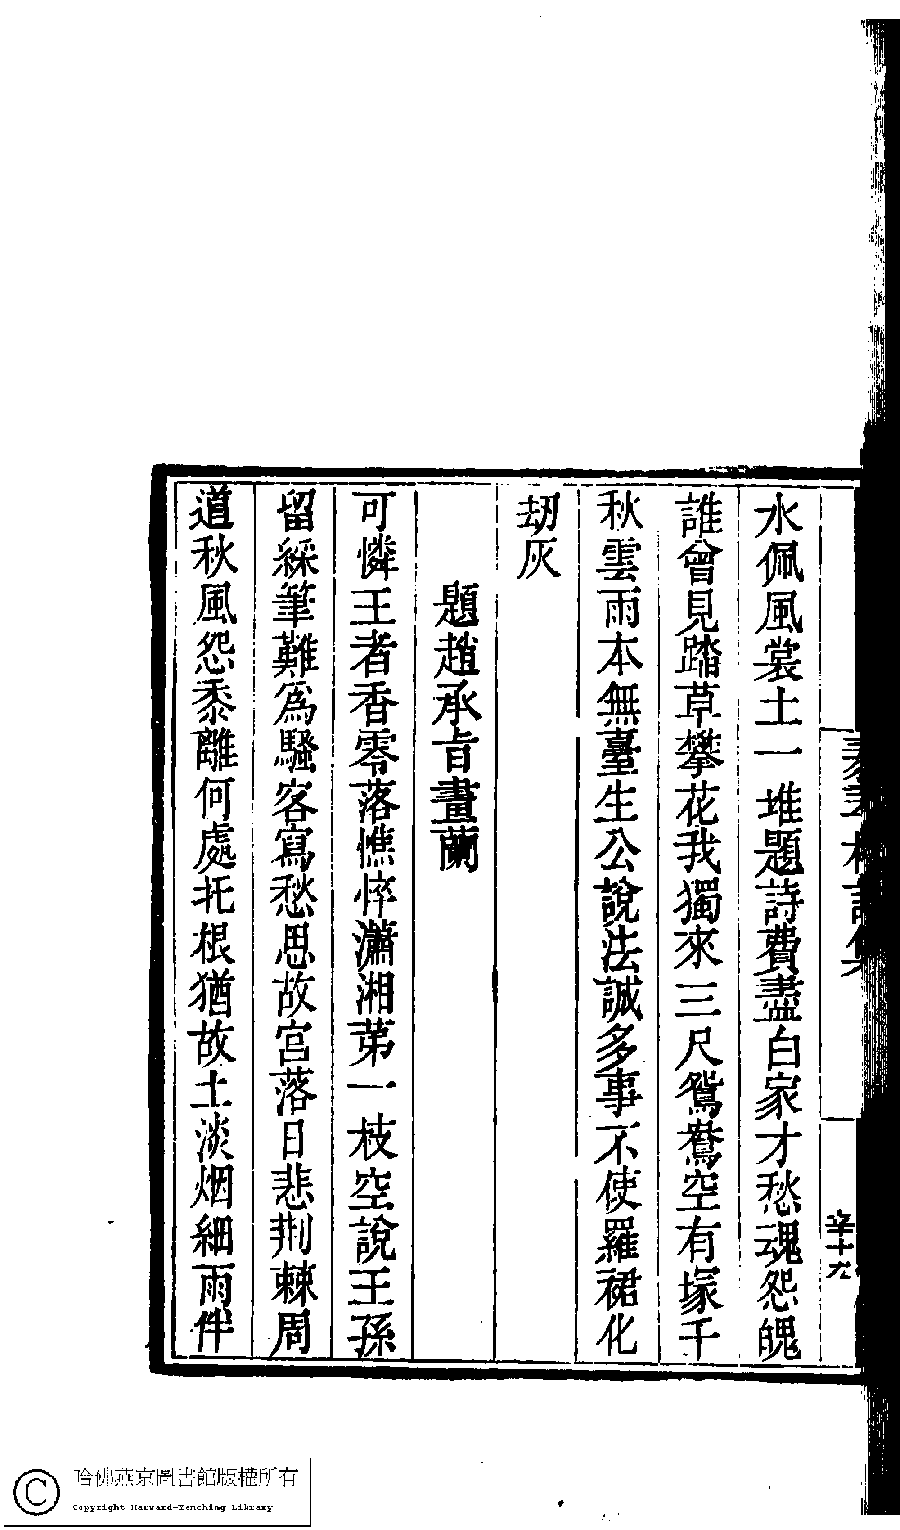 水佩風裳土一堆題詩費盡白家才愁魂怨魄
誰曾見踏草攀花我獨來三尺鴛鴦空有塚千
秋雲雨本無臺生公說法誠多事不使羅裙化
劫灰
題趙承旨畫蘭
可憐王者香零落憔悴瀟湘苐一枝空說王孫
留綵筆難爲騷客寫愁思故宮落日悲荆棘周
道秋風怨黍離何處托根猶故土淡烟細雨伴
辛十九
哈佛燕京圖書館版權所有
Copyright Harvard-Yenching Library